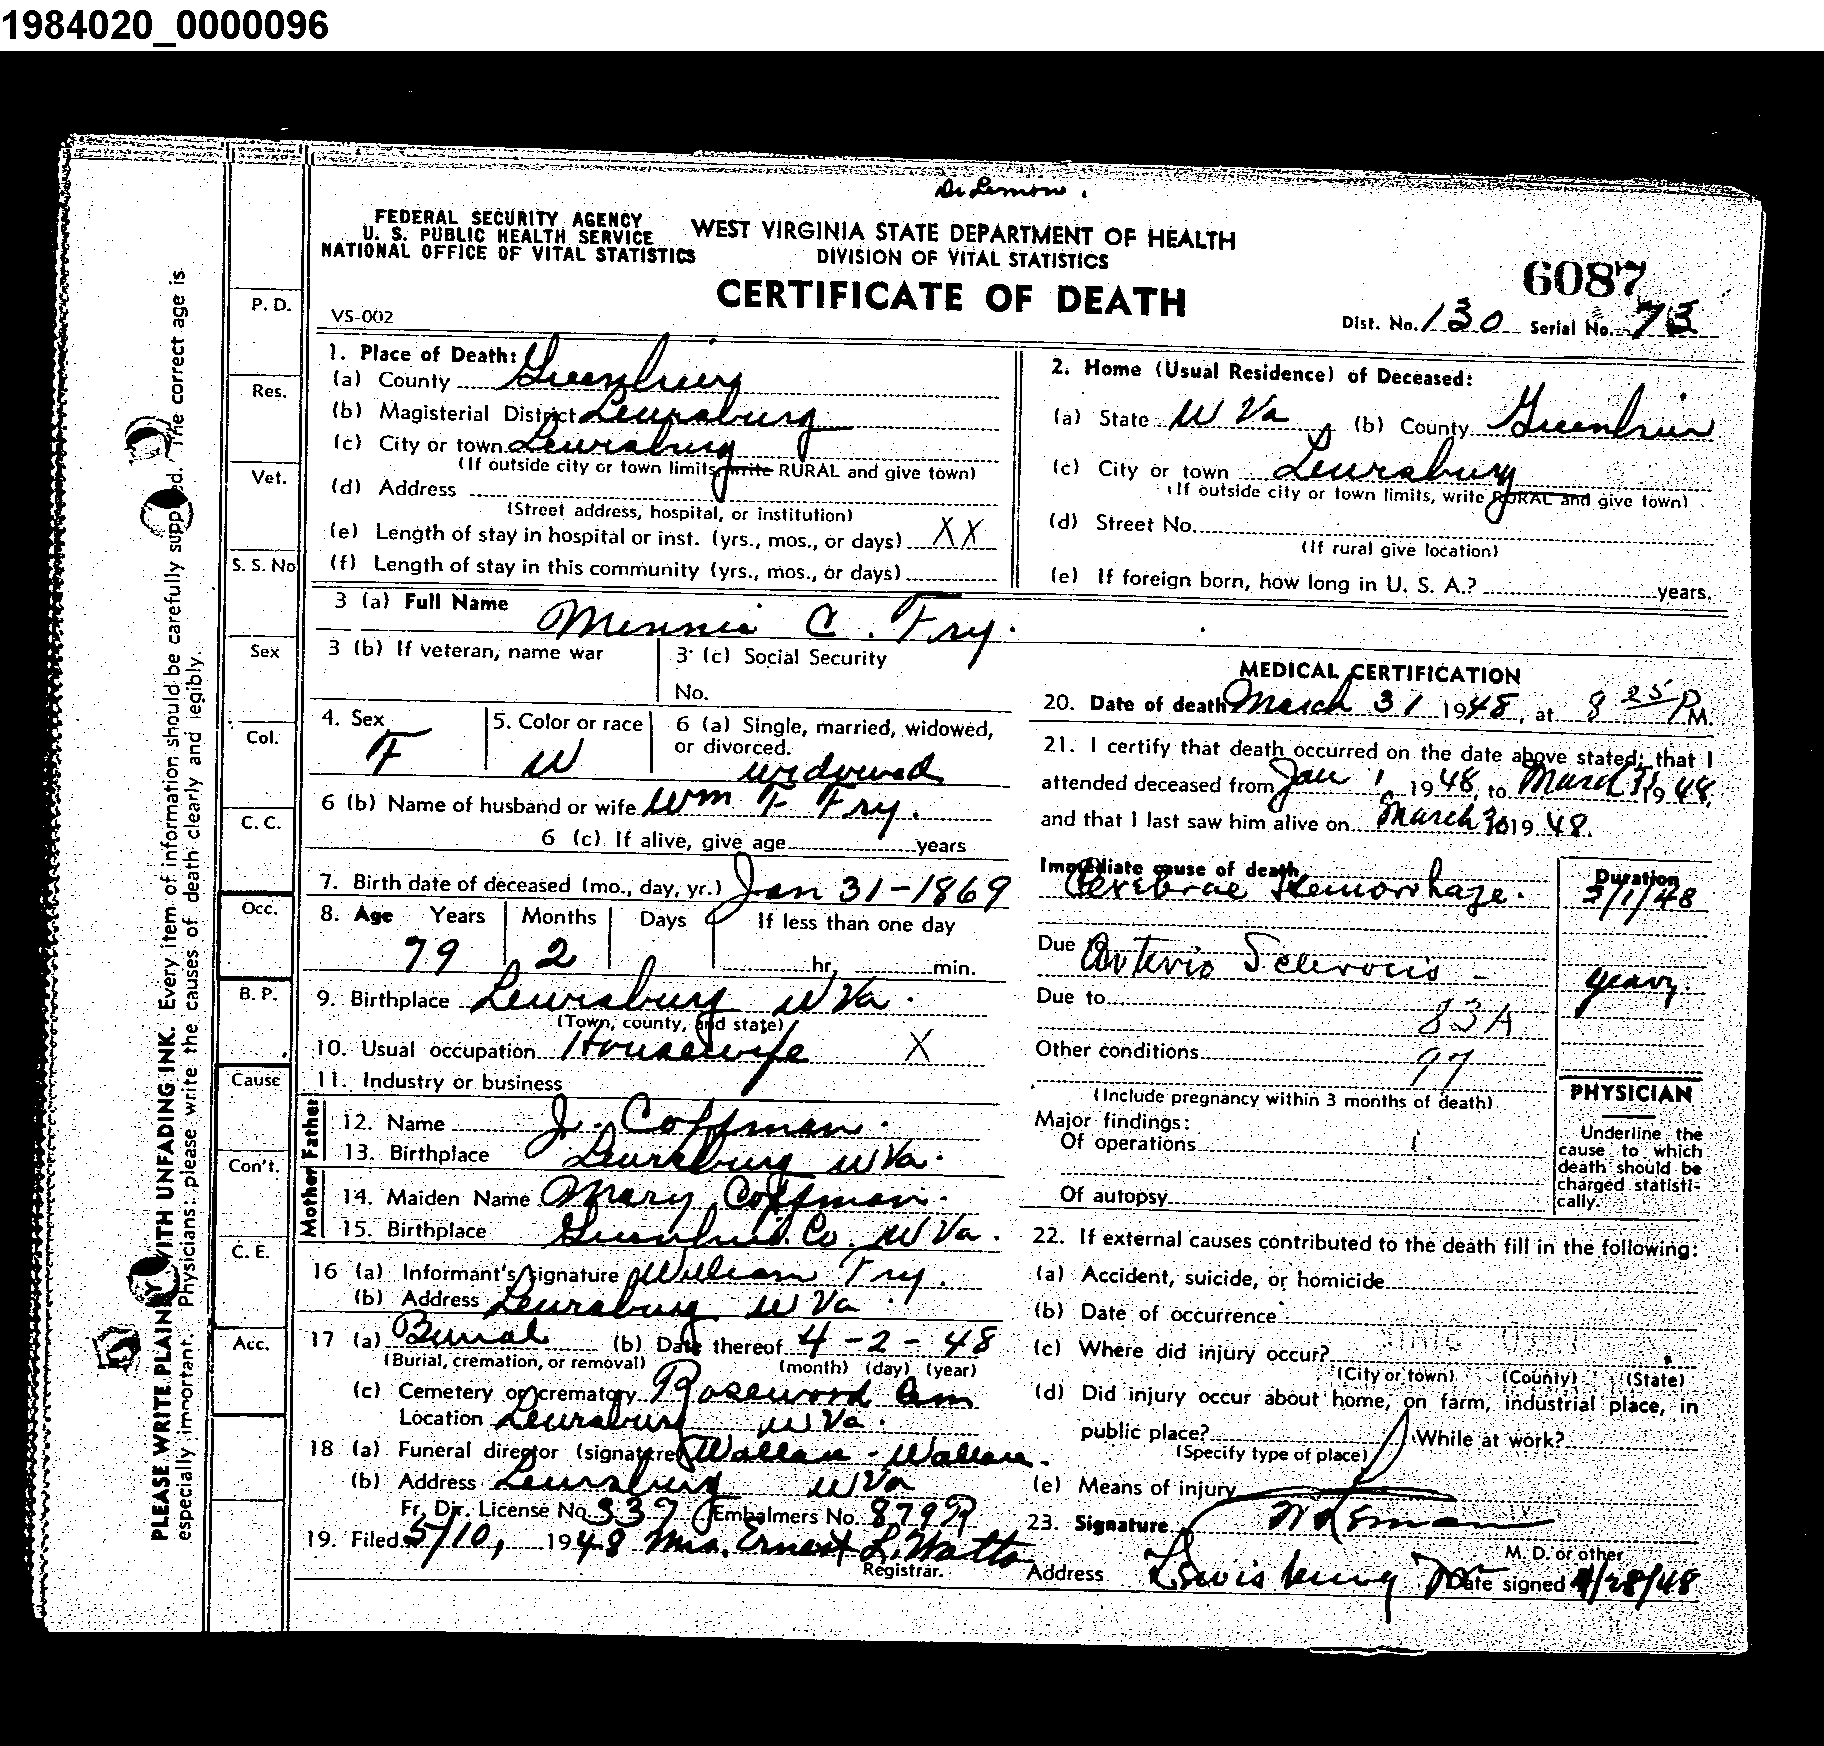 1984020_0000096
Dr Lemon.
FEDERAL SECURITY AGENCY
U. S. PUBLIC HEALTH SERVICE
NATIONAL OFFICE OF VITAL STATISTICS
WEST VIRGINIA STATE DEPARTMENT OF HEALTH
DIVISION OF VITAL STATISTICS
CERTIFICATE OF DEATH
6087
VS-002
Dist. No. 130 Serial No. 73
1. Place of Death:
(a) County Greenbrier
(b) Magisterial District Lewisburg
(c) City or town Lewisburg
(If outside city or town limits, write RURAL and give town)
(d) Address
(Street address, hospital, or institution)
(e) Length of stay in hospital or inst. (yrs., mos., or days) XX
(f) Length of stay in this community (yrs., mos., or days)
2. Home (Usual Residence) of Deceased:
(a) State W Va (b) County Greenbrier
(c) City or town Lewisburg
(If outside city or town limits, write RURAL and give town)
(d) Street No.
(If rural give location)
(e) If foreign born, how long in U. S. A.? years.
3 (a) Full Name Minnie C. Fry.
3 (b) If veteran, name war
3 (c) Social Security
No.
4. Sex F
5. Color or race W
6 (a) Single, married, widowed,
or divorced. widowed
6 (b) Name of husband or wife Wm F Fry.
6 (c) If alive, give age years
7. Birth date of deceased (mo., day, yr.) Jan 31-1869
8. Age Years Months Days If less than one day
79 2 hr. min.
9. Birthplace Lewisburg W Va.
(Town, county, and state)
10. Usual occupation Housewife X
11. Industry or business
Father
12. Name J. Coffman.
13. Birthplace Lewisburg W Va.
Mother
14. Maiden Name Mary Coffman.
15. Birthplace Greenbrier Co. W Va.
16 (a) Informant's signature William Fry.
(b) Address Lewisburg W Va.
17 (a) Burial (b) Date thereof 4-2-48
(Burial, cremation, or removal) (month) (day) (year)
(c) Cemetery or crematory Rosewood Cem
Location Lewisburg W Va.
18 (a) Funeral director (signature) Wallace-Wallace.
(b) Address Lewisburg W Va
Fr. Dir. License No 337 Embalmers No. 879
19. Filed 5/10, 1948 Mrs. Ernest L. Watts
Registrar.
MEDICAL CERTIFICATION
20. Date of death March 31 1948, at 8 25 P M.
21. I certify that death occurred on the date above stated; that I
attended deceased from Jan 1 1948, to March 31 1948,
and that I last saw him alive on March 30 1948.
Immediate cause of death Duration
Cerebrae Hemorrhage. 3/1/48
Due to Arterio Sclerocis - years.
Due to
83A
Other conditions 97
(Include pregnancy within 3 months of death)
Major findings:
Of operations
Of autopsy
PHYSICIAN
Underline the
cause to which
death should be
charged statisti-
cally.
22. If external causes contributed to the death fill in the following:
(a) Accident, suicide, or homicide
(b) Date of occurrence
(c) Where did injury occur?
(City or town) (County) (State)
(d) Did injury occur about home, on farm, industrial place, in
public place? While at work?
(Specify type of place)
(e) Means of injury
23. Signature
M. D. or other
Address Lewisburg Date signed 4/28/48
P. D.
Res.
Vet.
S. S. No
Sex
Col.
C. C.
Occ.
B. P.
Cause
Con't.
C. E.
Acc.
PLEASE WRITE PLAINLY WITH UNFADING INK. Every item of information should be carefully supplied. The correct age is
especially important. Physicians: please write the causes of death clearly and legibly.